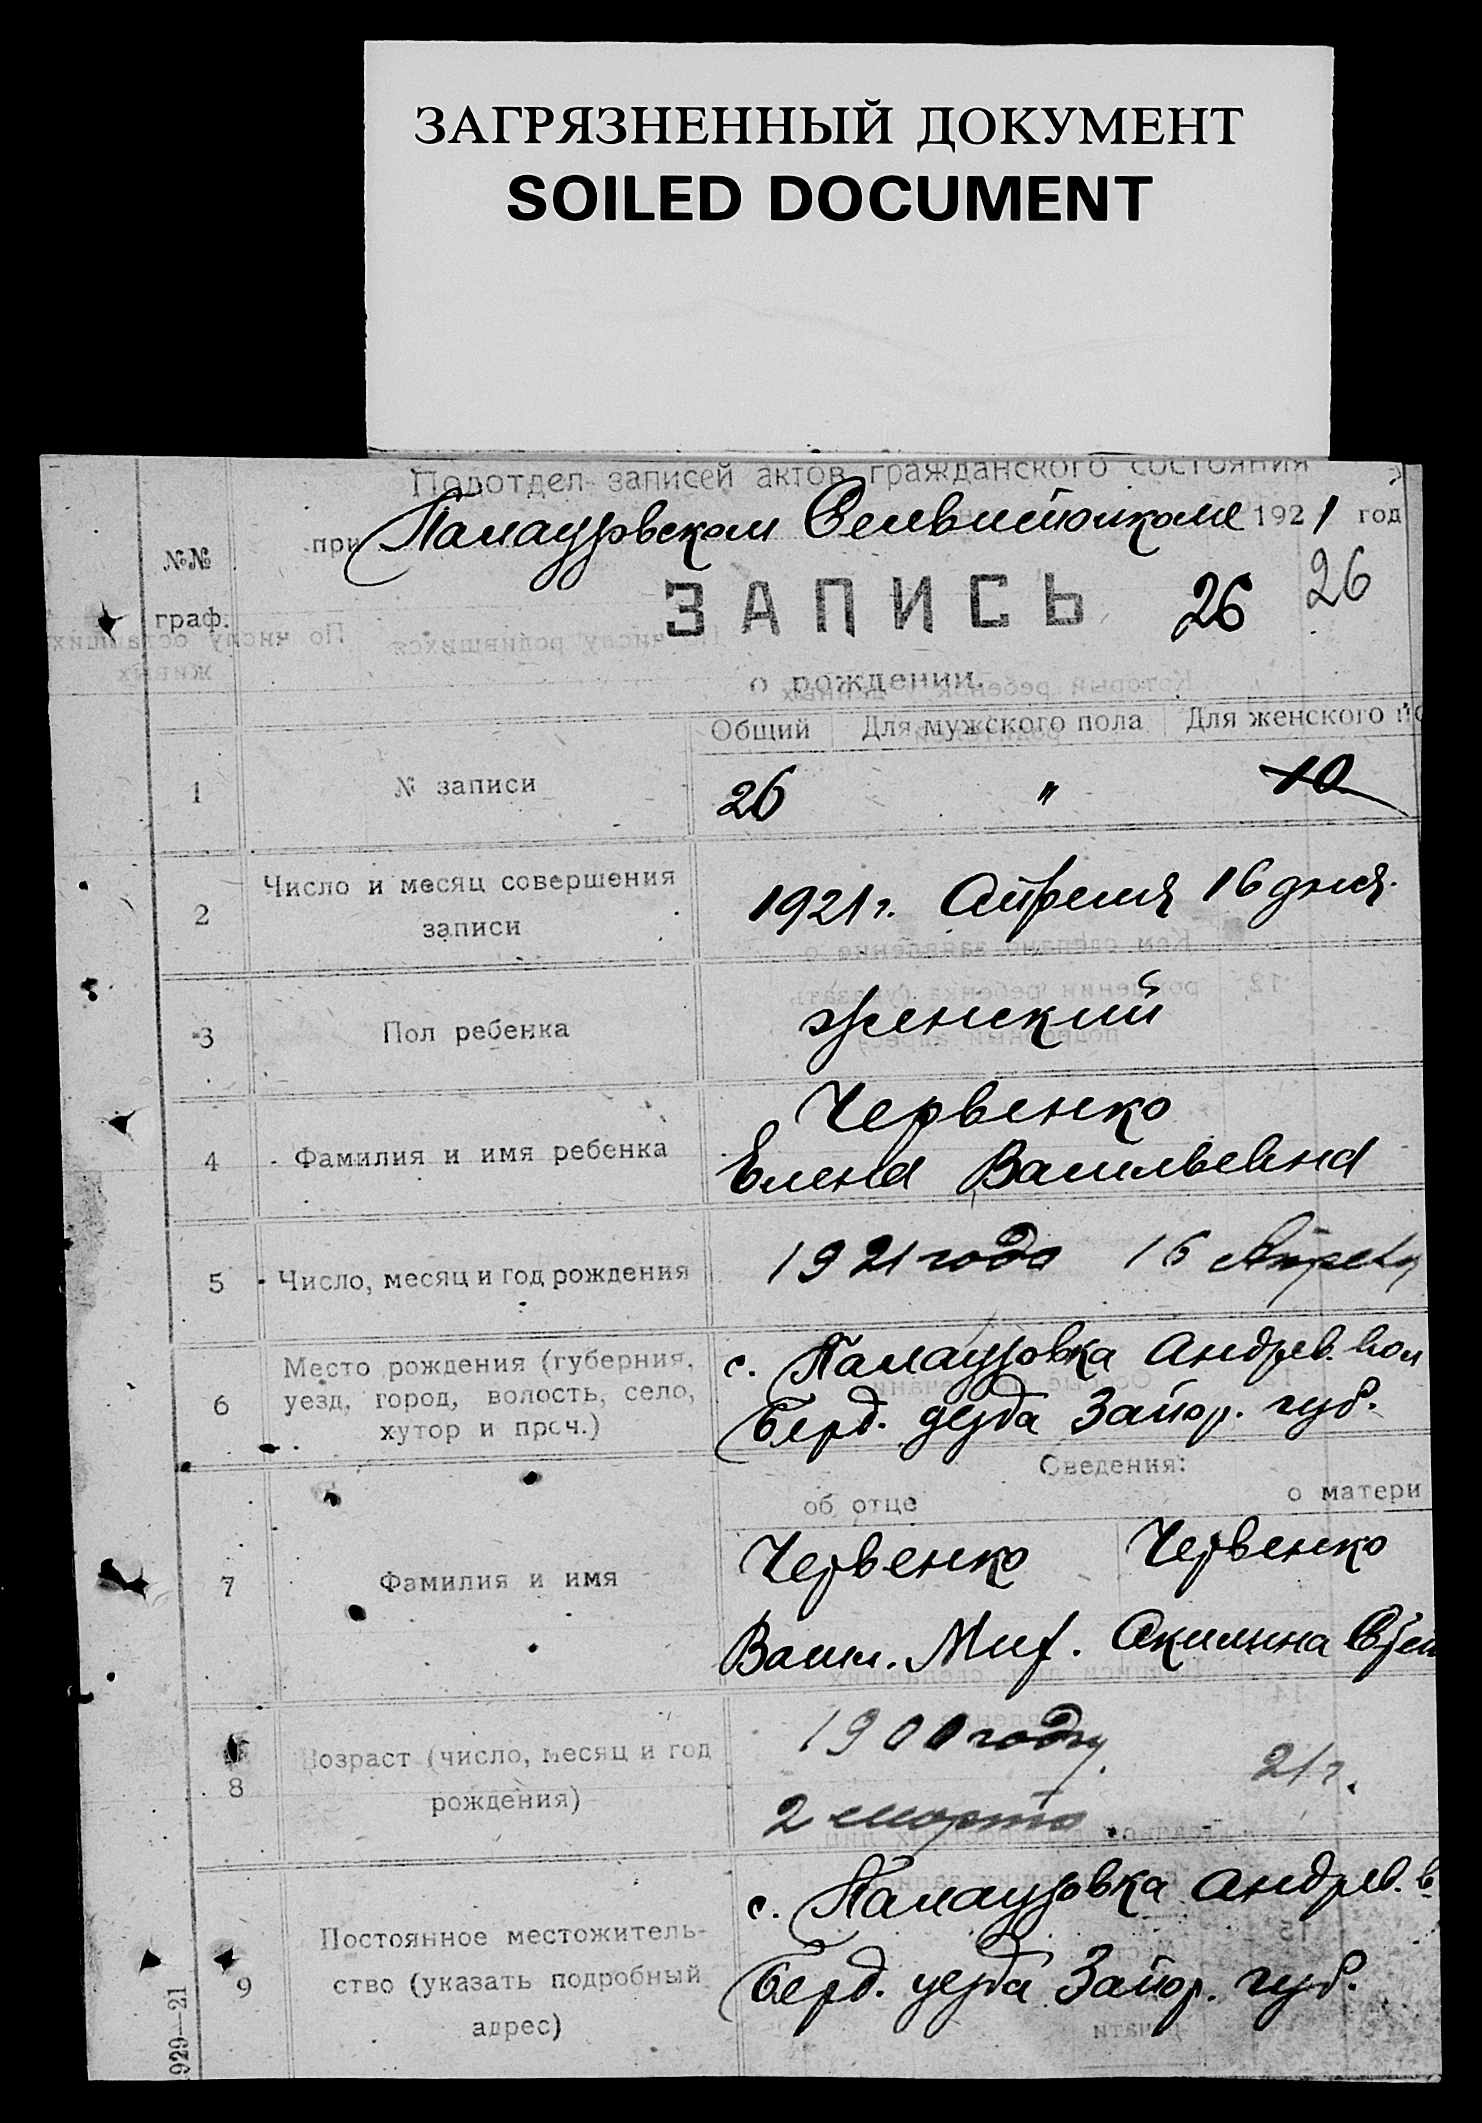 ЗАГРЯЗНЕННЫЙ ДОКУМЕНТ
SOILED DOCUMENT
Подотдел записей актов гражданского состояния
при Палаузовском 1921 год
№№ граф.
ЗАПИСЬ 26 26
о рождении.
Общий Для мужского пола Для женского по
1 № записи 26 " 10
2 Число и месяц совершения записи 1921 г. Апреля 16 дня.
3 Пол ребенка женский
4 Фамилия и имя ребенка Червенко
Елена Васильевна
5 Число, месяц и год рождения 1921 года 16 Апреля
6 Место рождения (губерния, с. Палаузовка Андрев. вол
уезд, город, волость, село, Берд. уезда Запор. губ.
хутор и проч.)
Сведения:
об отце о матери
7 Фамилия и имя Червенко Червенко
Васил. Акилина
8 Возраст (число, месяц и год 1900 году 21 г.
рождения) 2 марта
9 Постоянное местожитель- с. Палаузовка Андрев. в
ство (указать подробный Берд. уезда Запор. губ.
адрес)
929—21